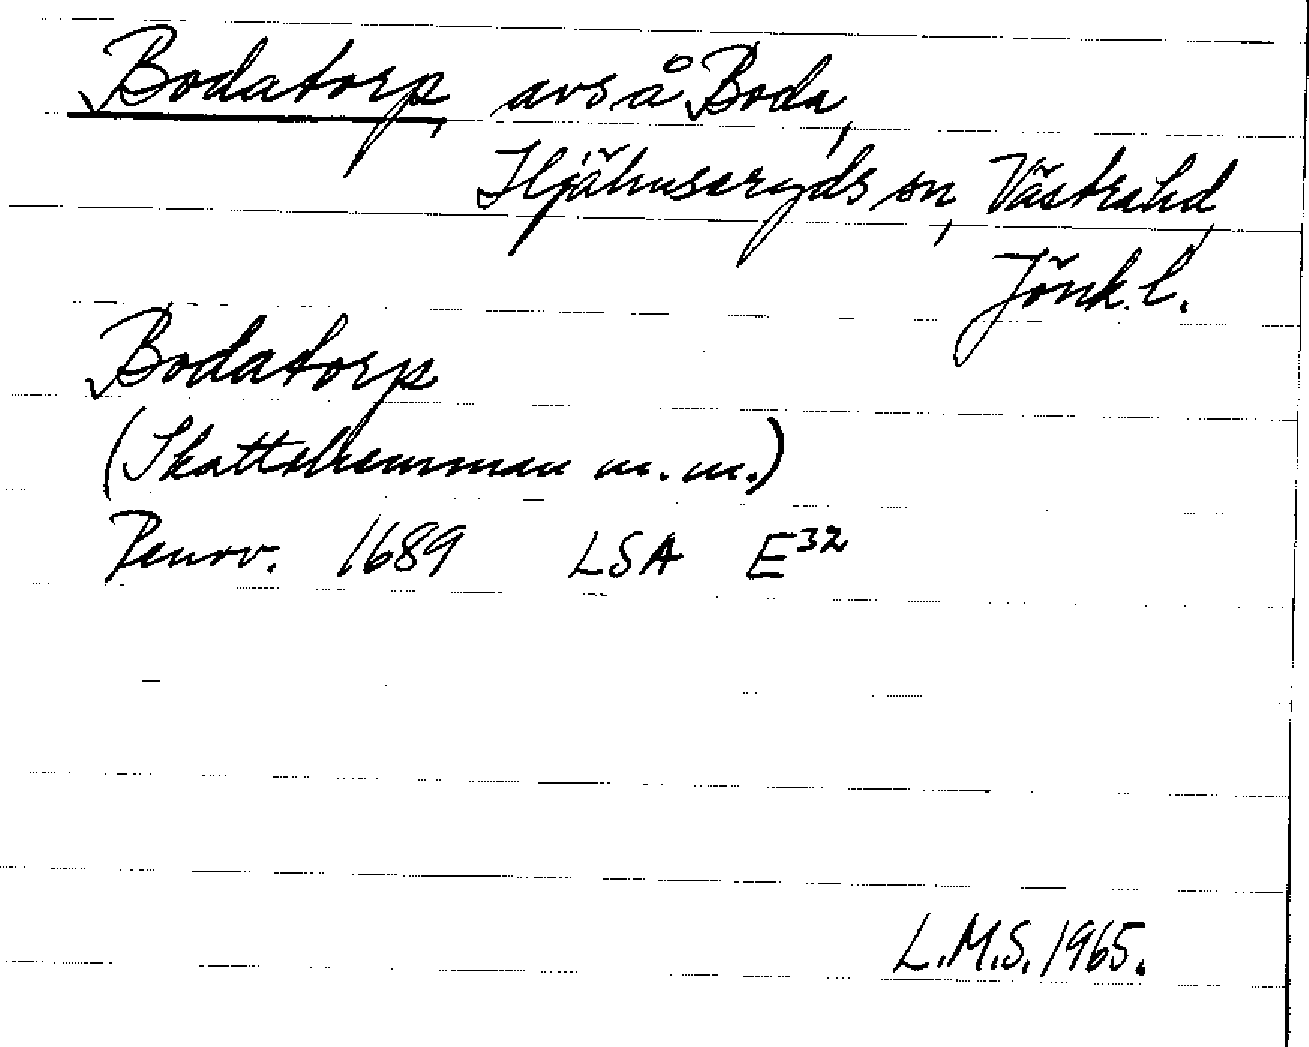 Bodatorp, avs å Boda,
Hjälmseryds sn, Västra hd,
Jönk. l.
Bodatorp
(Skattehemman m.m.)
Renov. 1689 LSA E32
L.M.S. 1965.